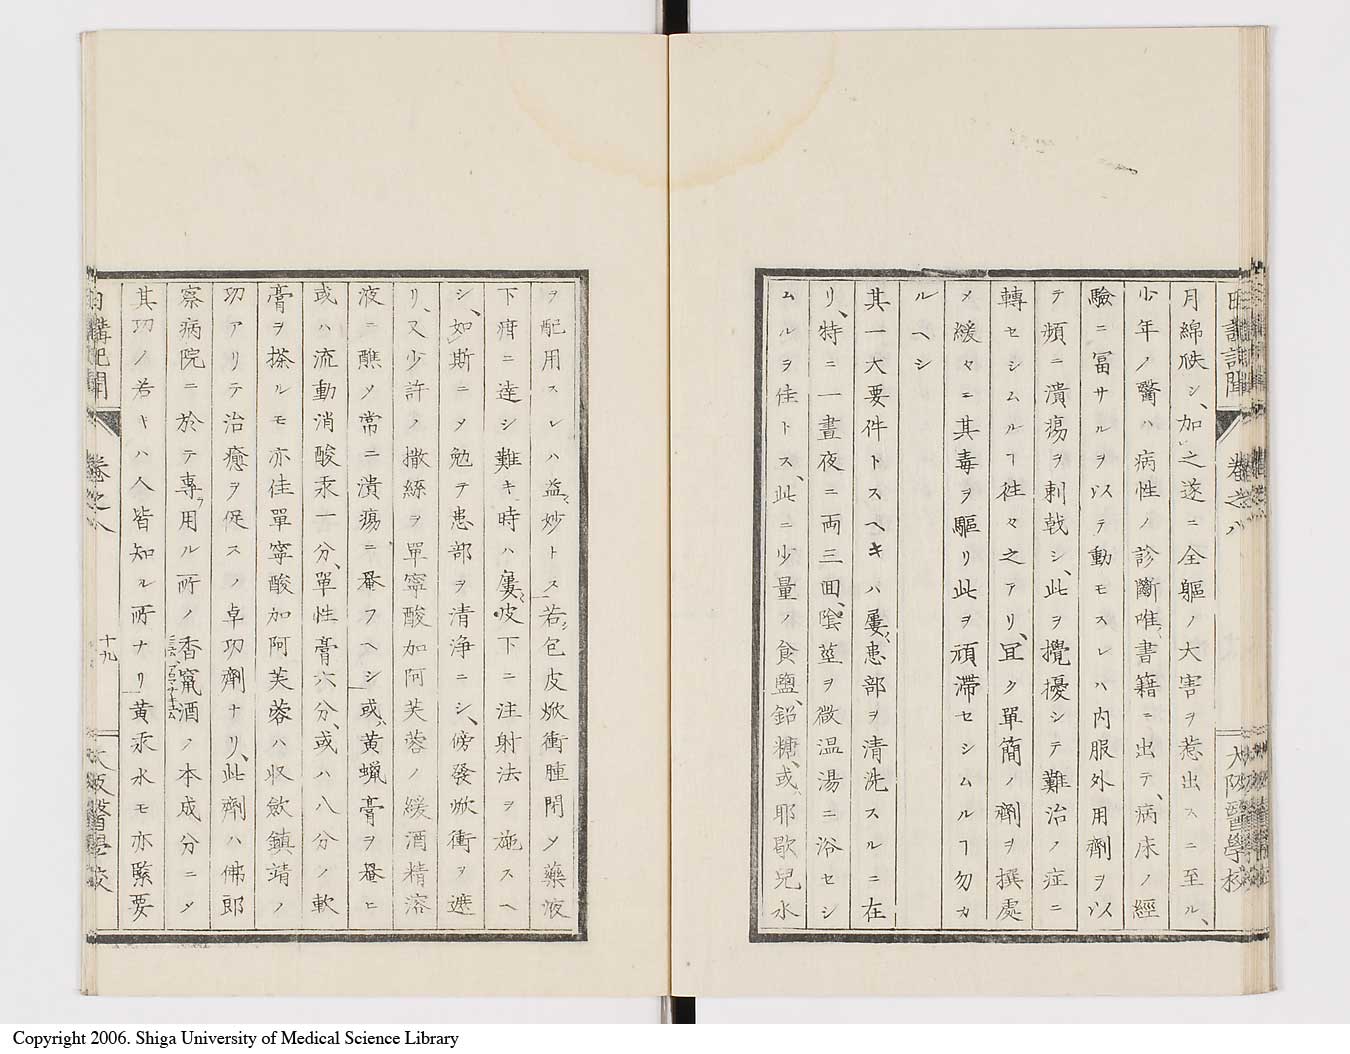 月綿袂シ、加之遂ニ全軀ノ大害ヲ惹出スニ至ル、
少年ノ醫ハ病性ノ診斷唯書籍ニ出テ、病床ノ經
驗ニ冨サルヲ以テ動モスレハ内服外用劑ヲ以
テ頻ニ潰瘍ヲ刺戟シ、此ヲ攪擾シテ難治ノ症ニ
轉セシムルヿ徃々之アリ、冝ク單簡ノ劑ヲ撰處
メ緩々ニ其毒ヲ驅リ此ヲ頑滯セシムルヿ勿カ
ルヘシ
其一大要件トスヘキハ屢患部ヲ清洗スルニ在
リ、特ニ一晝夜ニ両三回、陰莖ヲ微温湯ニ浴セシ
ムルヲ佳トス、此ニ少量ノ食鹽、鉛糖、或耶歇兒水
日講記聞 卷之八 大阪醫學校
ヲ配用スレハ益妙トス若包皮焮衝腫閉メ藥液
下疳ニ達シ難キ時ハ屢皮下ニ注射法ヲ施スヘ
シ、如斯ニメ勉テ患部ヲ清浄ニシ、傍發焮衝ヲ遮
リ、又少許ノ撒絲ヲ單寧酸加阿芙蓉ノ緩酒精溶
液ニ醮メ常ニ潰瘍ニ罨フヘシ或黄蝋膏ヲ罨ヒ
或ハ流動消酸汞一分、單性膏六分、或ハ八分ノ軟
膏ヲ搽ルモ亦佳單寧酸加阿芙蓉ハ収斂鎮靖ノ
功アリテ治癒ヲ促スノ卓功劑ナリ、此劑ハ佛郎
察病院ニ於テ專用ル所ノ香竄酒ノ本成分ニメ
其功ノ若キハ人皆知ル所ナリ黄汞水モ亦緊要
日講記聞 卷之八 十九 大阪醫學校
Copyright 2006. Shiga University of Medical Science Library